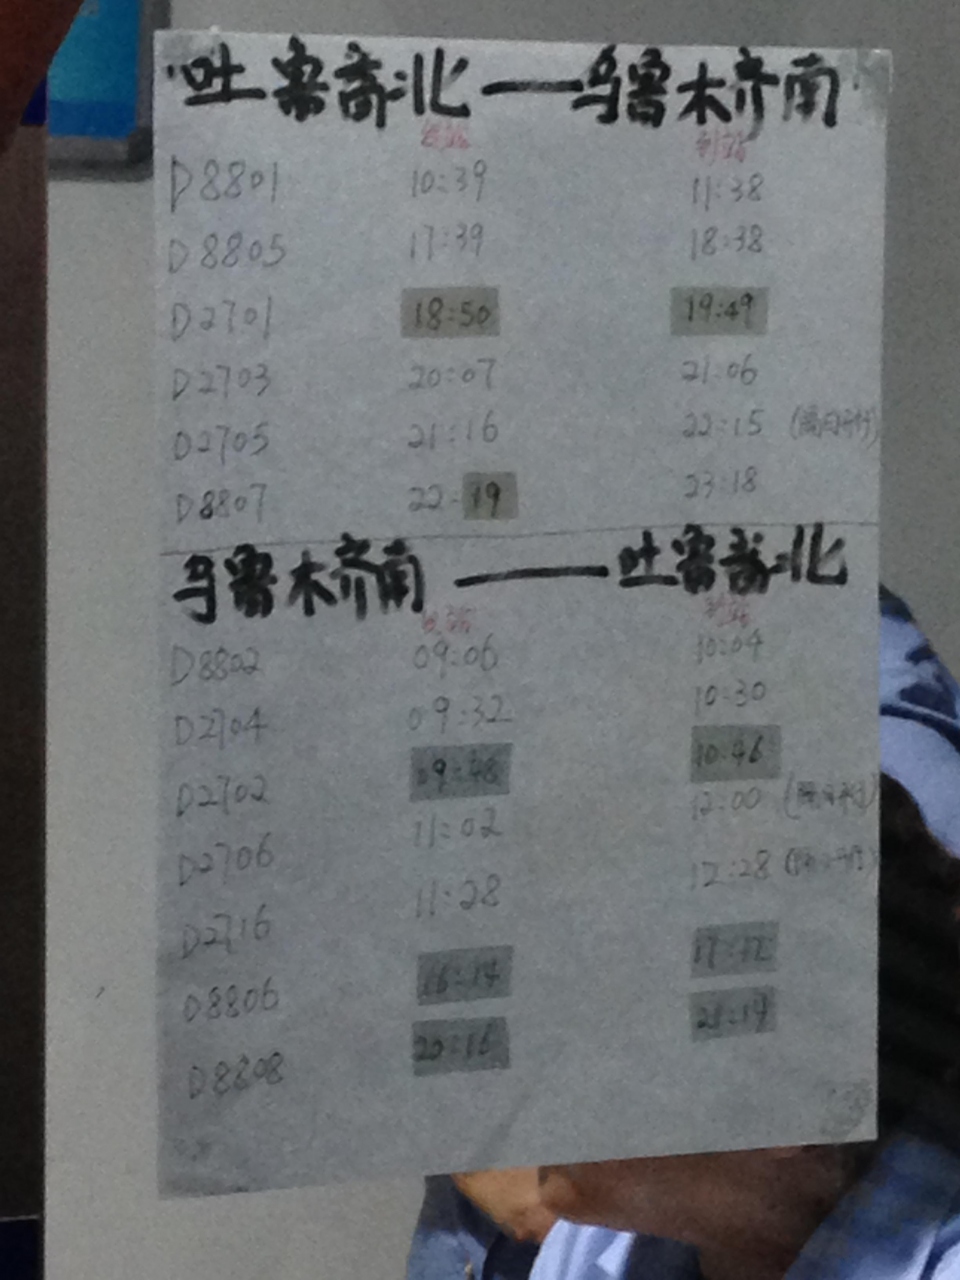 吐鲁番北——乌鲁木齐南
到站
D8801 10:39 11:38
D8805 17:39 18:38
D2701 18:50 19:49
D2703 20:07 21:06
D2705 21:16 22:15 (隔日开行)
D8807 22:19 23:18
乌鲁木齐南——吐鲁番北
到站
D8802 09:06 10:04
D2704 09:32 10:30
D2702 09:48 10:46
D2706 11:02 12:00 (隔日开行)
D2716 11:28 12:28
D8806 16:14 17:12
D8808 20:16 21:14